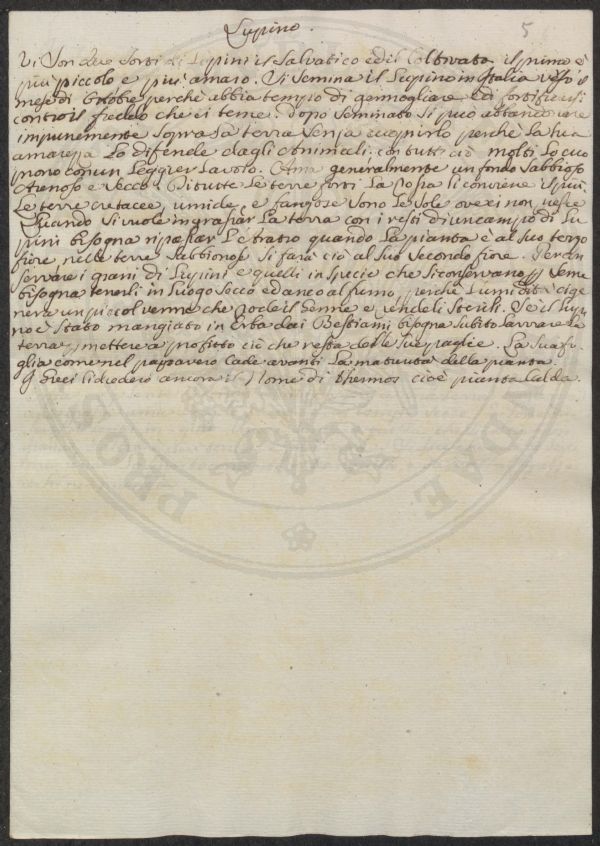 Lupino.
5
Vi son due sorti di Lupini il Salvatico ed il Coltivato il primo è
più piccolo e più amaro. Vi semina il Lupino in Italia verso il
mese di Ottobre perchè abbia tempo di germogliare ed fortificarsi
contro il freddo che ei teme. Dopo seminato si può abbandonare
impunemente sopra la terra senza cuoprirlo perchè la sua
amarezza lo difende dagli animali. con tutto ciò molti lo cuo
prono con un leggier lavoro. Ama generalmente un fondo sabbioso
Arenoso e secco. Di tutte le terre forti la rossa li conviene il più
le terre cretacee, umide, e fangose sono le sole ove ei non
Quando si vuole ingrassar la terra con i resti di un campo di Lu
pini bisogna ripassar l'Aratro quando la pianta è al suo terzo
fiore nelle terre sabbionose si farà ciò al suo secondo fiore.
servare i grani di Lupini e quelli in specie che si conservano p seme
bisogna tenerli in luogo secco ed anco al fumo, perchè l'umidità ci ge
nera un piccol verme che rode il Germe e rendeli sterili. Se il Lupi
no è stato mangiato in Erba dai Bestiami bisogna subito lavorare la
terra, mettere a profitto ciò che resta delle sue paglie. La sua fo
glia come nel papavero cade avanti la maturità della pianta.
I Greci li diedero ancora il Nome di thermos cioè pianta calda.
PROS
NDAE